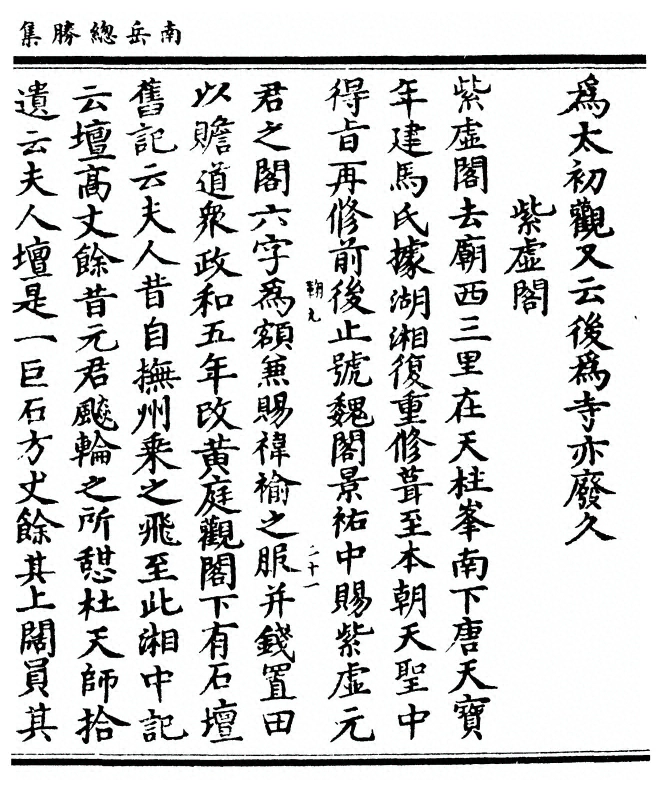 南岳總勝集
為太初觀又云後為寺亦廢久
紫虛閣
紫虛閣去廟西三里在天柱峯南下唐天寶
年建馬氏據湖湘復重修葺至本朝天聖中
得旨再修前後止號魏閣景祐中賜紫虛元
君之閣六字為額兼賜褘褕之服并錢置田
二十一
以贍道衆政和五年改黄庭觀閣下有石壇
舊記云夫人昔自撫州乘之飛至此湘中記
云壇高丈餘昔元君飈輪之所憇杜天師拾
遺云夫人壇是一巨石方丈餘其上闊員其